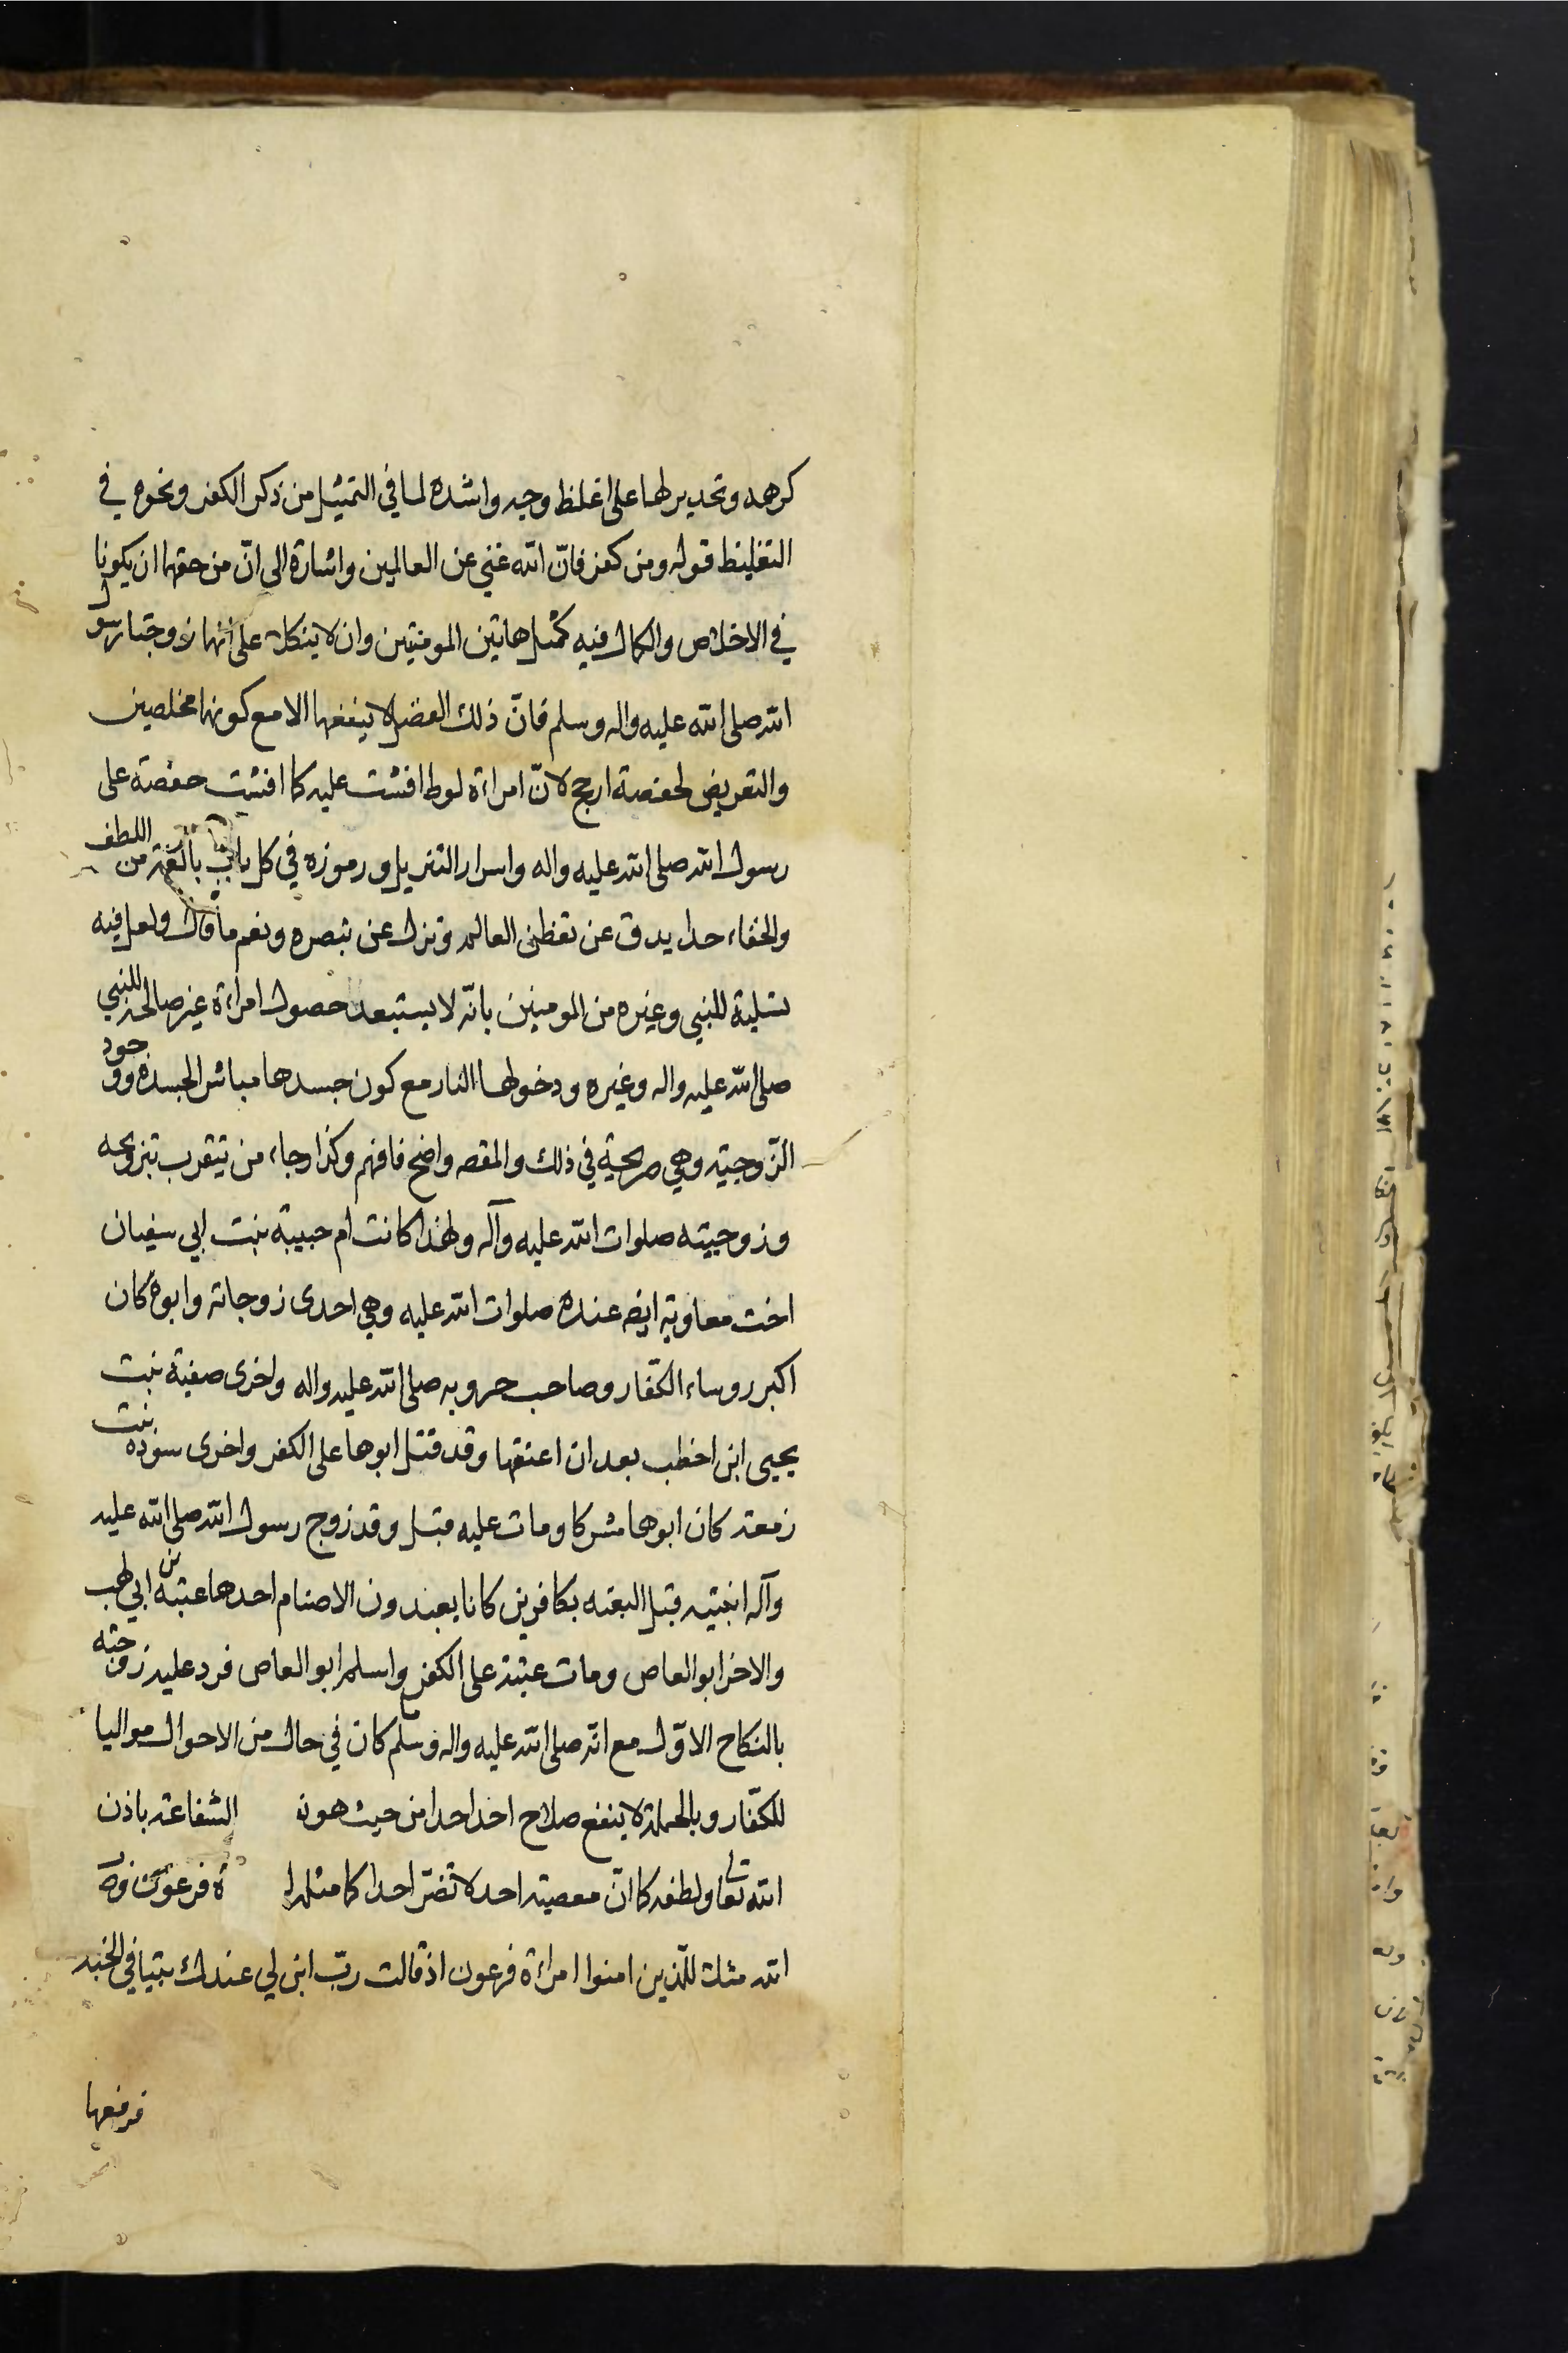 كرهه وتحدير لها على اغلظ وجه واشده لما في التمثيل من ذكر الكفر ونحوه في
التغليظ قوله ومن كفر فانّ الله غني عن العالمين واشارة الى انّ من حقهما ان يكونا
في الاخلاص والكمال فيه كمثل هاتين المومنتين وان لا يتكلا على انهما زوجتا رسول
الله صلى الله عليه واله وسلم فانّ ذلك الفضل لا ينفعهما الا مع كونهما مخلصين
والتعريض لحفصة ارجح لانّ امراءة لوط افشت عليه كما افشت حفصة على
رسول الله صلى الله عليه واله واسرار التنزيل ورموزه في كل باب بالغة من اللطف
والخفاء حدا يدق عن تفطن العالم وتزل عن تبصره ونعم ما قال ولعل فيه
تسلية للنبي وغيره من المومنين بانّه لا يستبعد حصول امراءة غير صالحة للنبي
صلى الله عليه واله وغيره ودخولها النار مع كون جسدها مباشر الجسده ووجود
الزّوجيّه وهي صريحية في ذلك والمقصه واضح فافهم وكذا وجاء من يتقرب بتزويجه
وزوجيته صلوات الله عليه وآله ولهذا كانت ام حبيبة بنت ابي سفيان
اخت معاوية ايضه عنده صلوات الله عليه وهي احدى زوجاته وابوه كان
اكبر روساء الكفّار وصاحب حروبه صلى الله عليه واله واخرى صفيّة بنت
يحيى ابن اخطب بعد ان اعتقها وقد قتل ابوها على الكفر واخرى سوده بنت
زمعة كان ابوها مشركا ومات عليه قبل وقد زوج رسول الله صلى الله عليه
وآله ابنتيه قبل البعثه بكافرين كانا يعبدون الاصنام احدهما عتبه بن ابي لهب
والاخر ابو العاص ومات عتبة على الكفر واسلم ابو العاص فرد عليه زوجته
بالنكاح الاوّل مع انّه صلى الله عليه واله وسلم ما كان في حال من الاحوال مواليا
للكفّار وبالجملة لا ينفع صلاح احد احدا من حيث هو الشفاعة باذن
الله تعالى ولطفه كما انّ معصية احد لا تضرّ احدا كما مثله ة فرعون
الله مثلا للّذين امنوا امراءة فرعون اذ قالت ربّ ابن لي عندك بيتا في الجنه
فرفعها